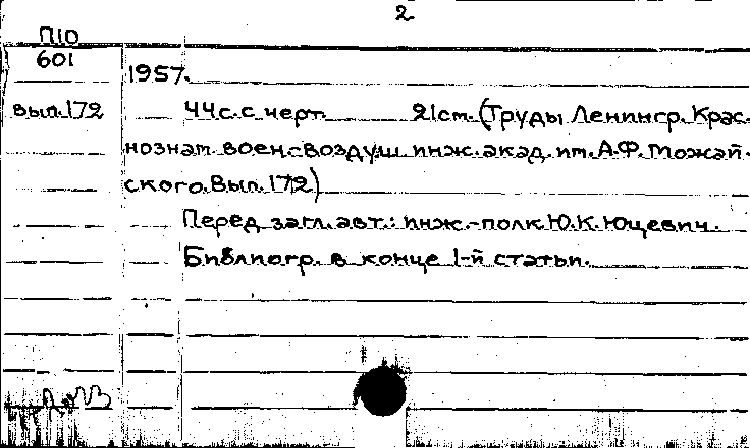 2
П10
601
1957.
вып.172
44с. с черт. 21см. (Труды Ленингр. Крас-
нознам. воен.-воздуш. инж. акад. им. А.Ф. Можай-
ского. Вып. 172)
Перед загл. авт.: инж.-полк. Ю.К. Юцевич.
Библиогр. в конце 1-й статьи.